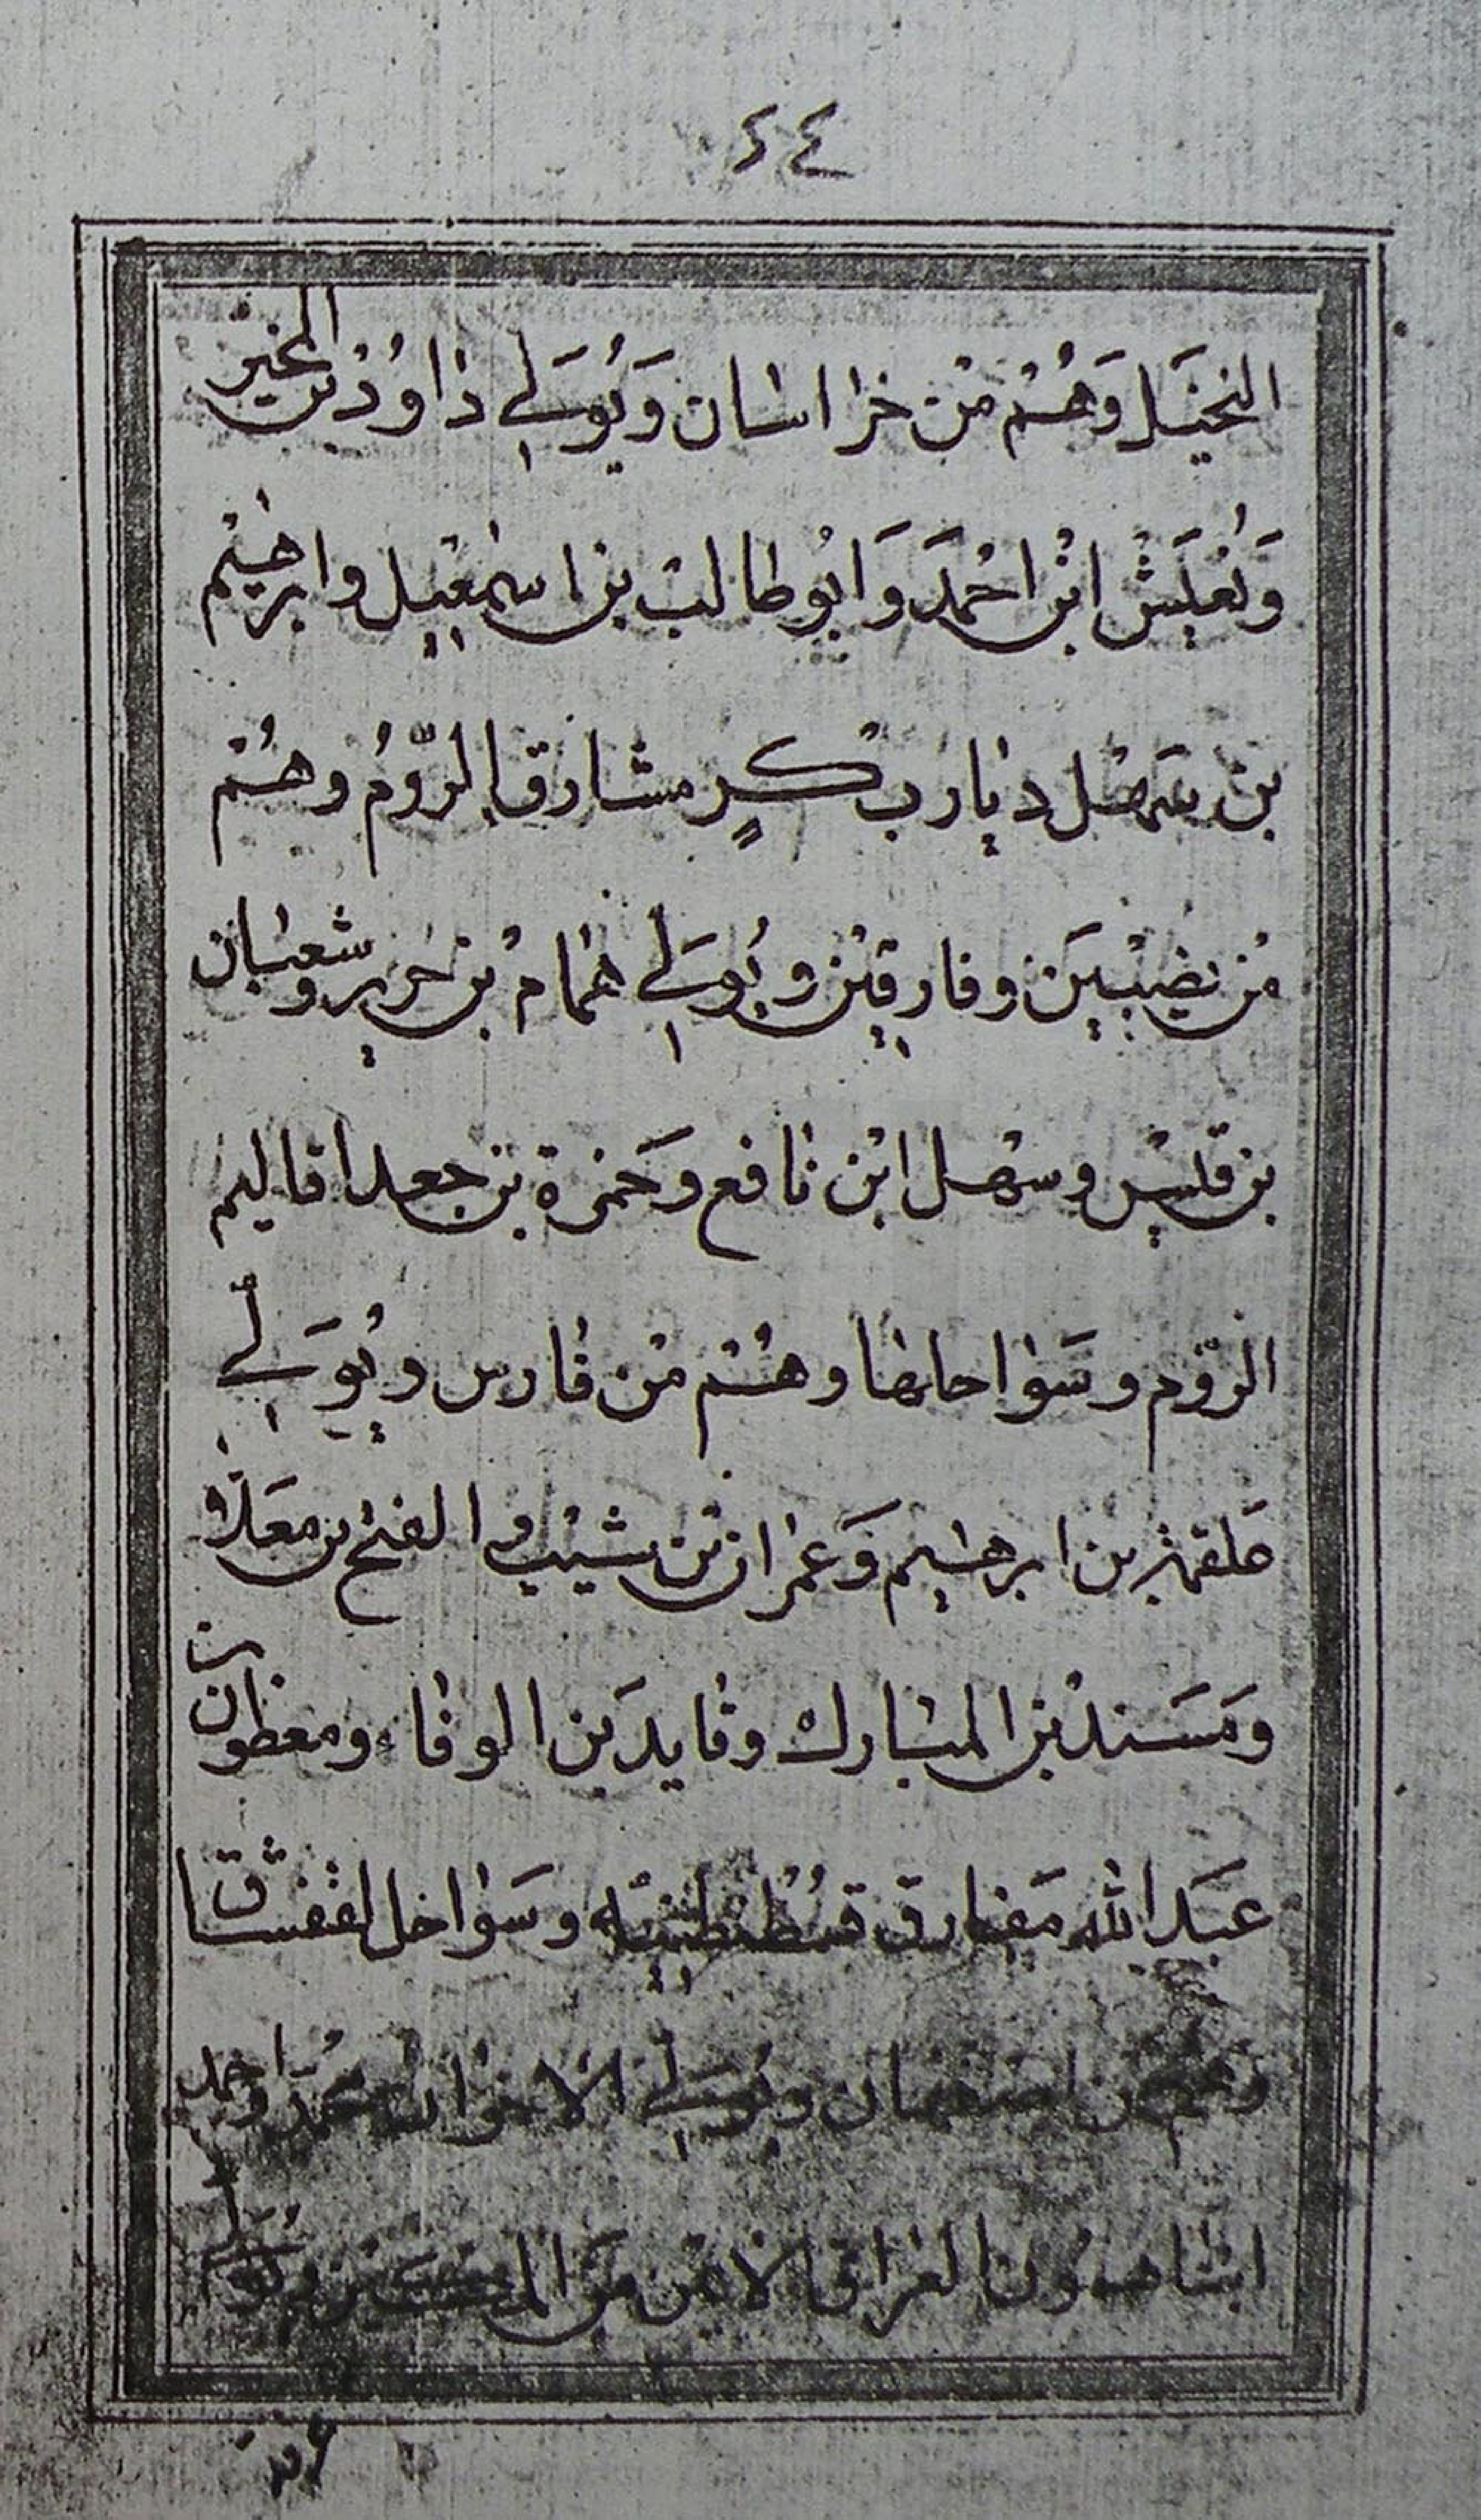 ٤٤
النخيل وَهُمْ مْن خراسان وَيُوَلي دٰاوُدْ بن المخير
وَيُعَيَشْ ابْن احْمَدَ وَابُو طالبْ بن اسمٰعيل وابرهيْم
بن سَهْل ديٰار بكرٍ مشارق الرّوُم وهُمْ
مْن نصيبْيَن وفارقيْن ويُوَلي همٰامْ بن حريرِ وشعبٰان
بن قيْس وسهْل ابْن نٰافع وحَمزة بن جعد اقاليم
الرّوم وسَوٰاحلها وهُمْ مْن فٰارس ويُوَلي
علقمة بن ابرهيم وَعمْرٰان بْن شيْب والفتح بن معَلّا
وَمَسَندْ بْن المبٰارك وفٰايد بَن الوفٰاء ومعظون بن
عبَد الله مَغٰارق قسُطُنطنيّه وسَوٰاحل القفشاق
وهُم من اصفهان ويُوَلي الاخوان محمّد واحمد
ابنٰا ميمون العرٰاق الايمن مَن ويُوَلي